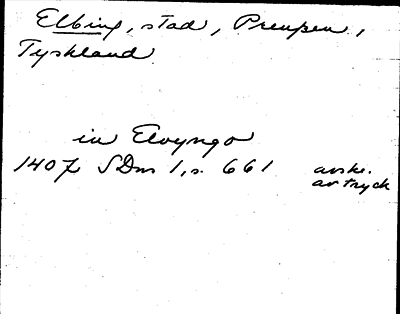 Elbing, stad, Preussen,
Tyskland
in Elvyngo
1407 SDns 1, s. 661 avskr.
av tryck